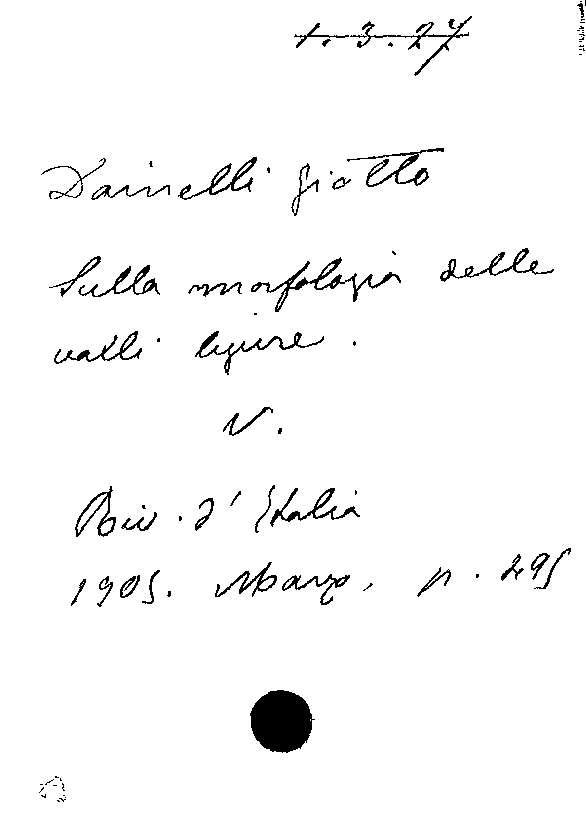 1.3.27
Dainelli Giotto
Sulla morfologia delle
valli liguri.
V.
Riv. d'Italia
1905. Marzo, p. 495